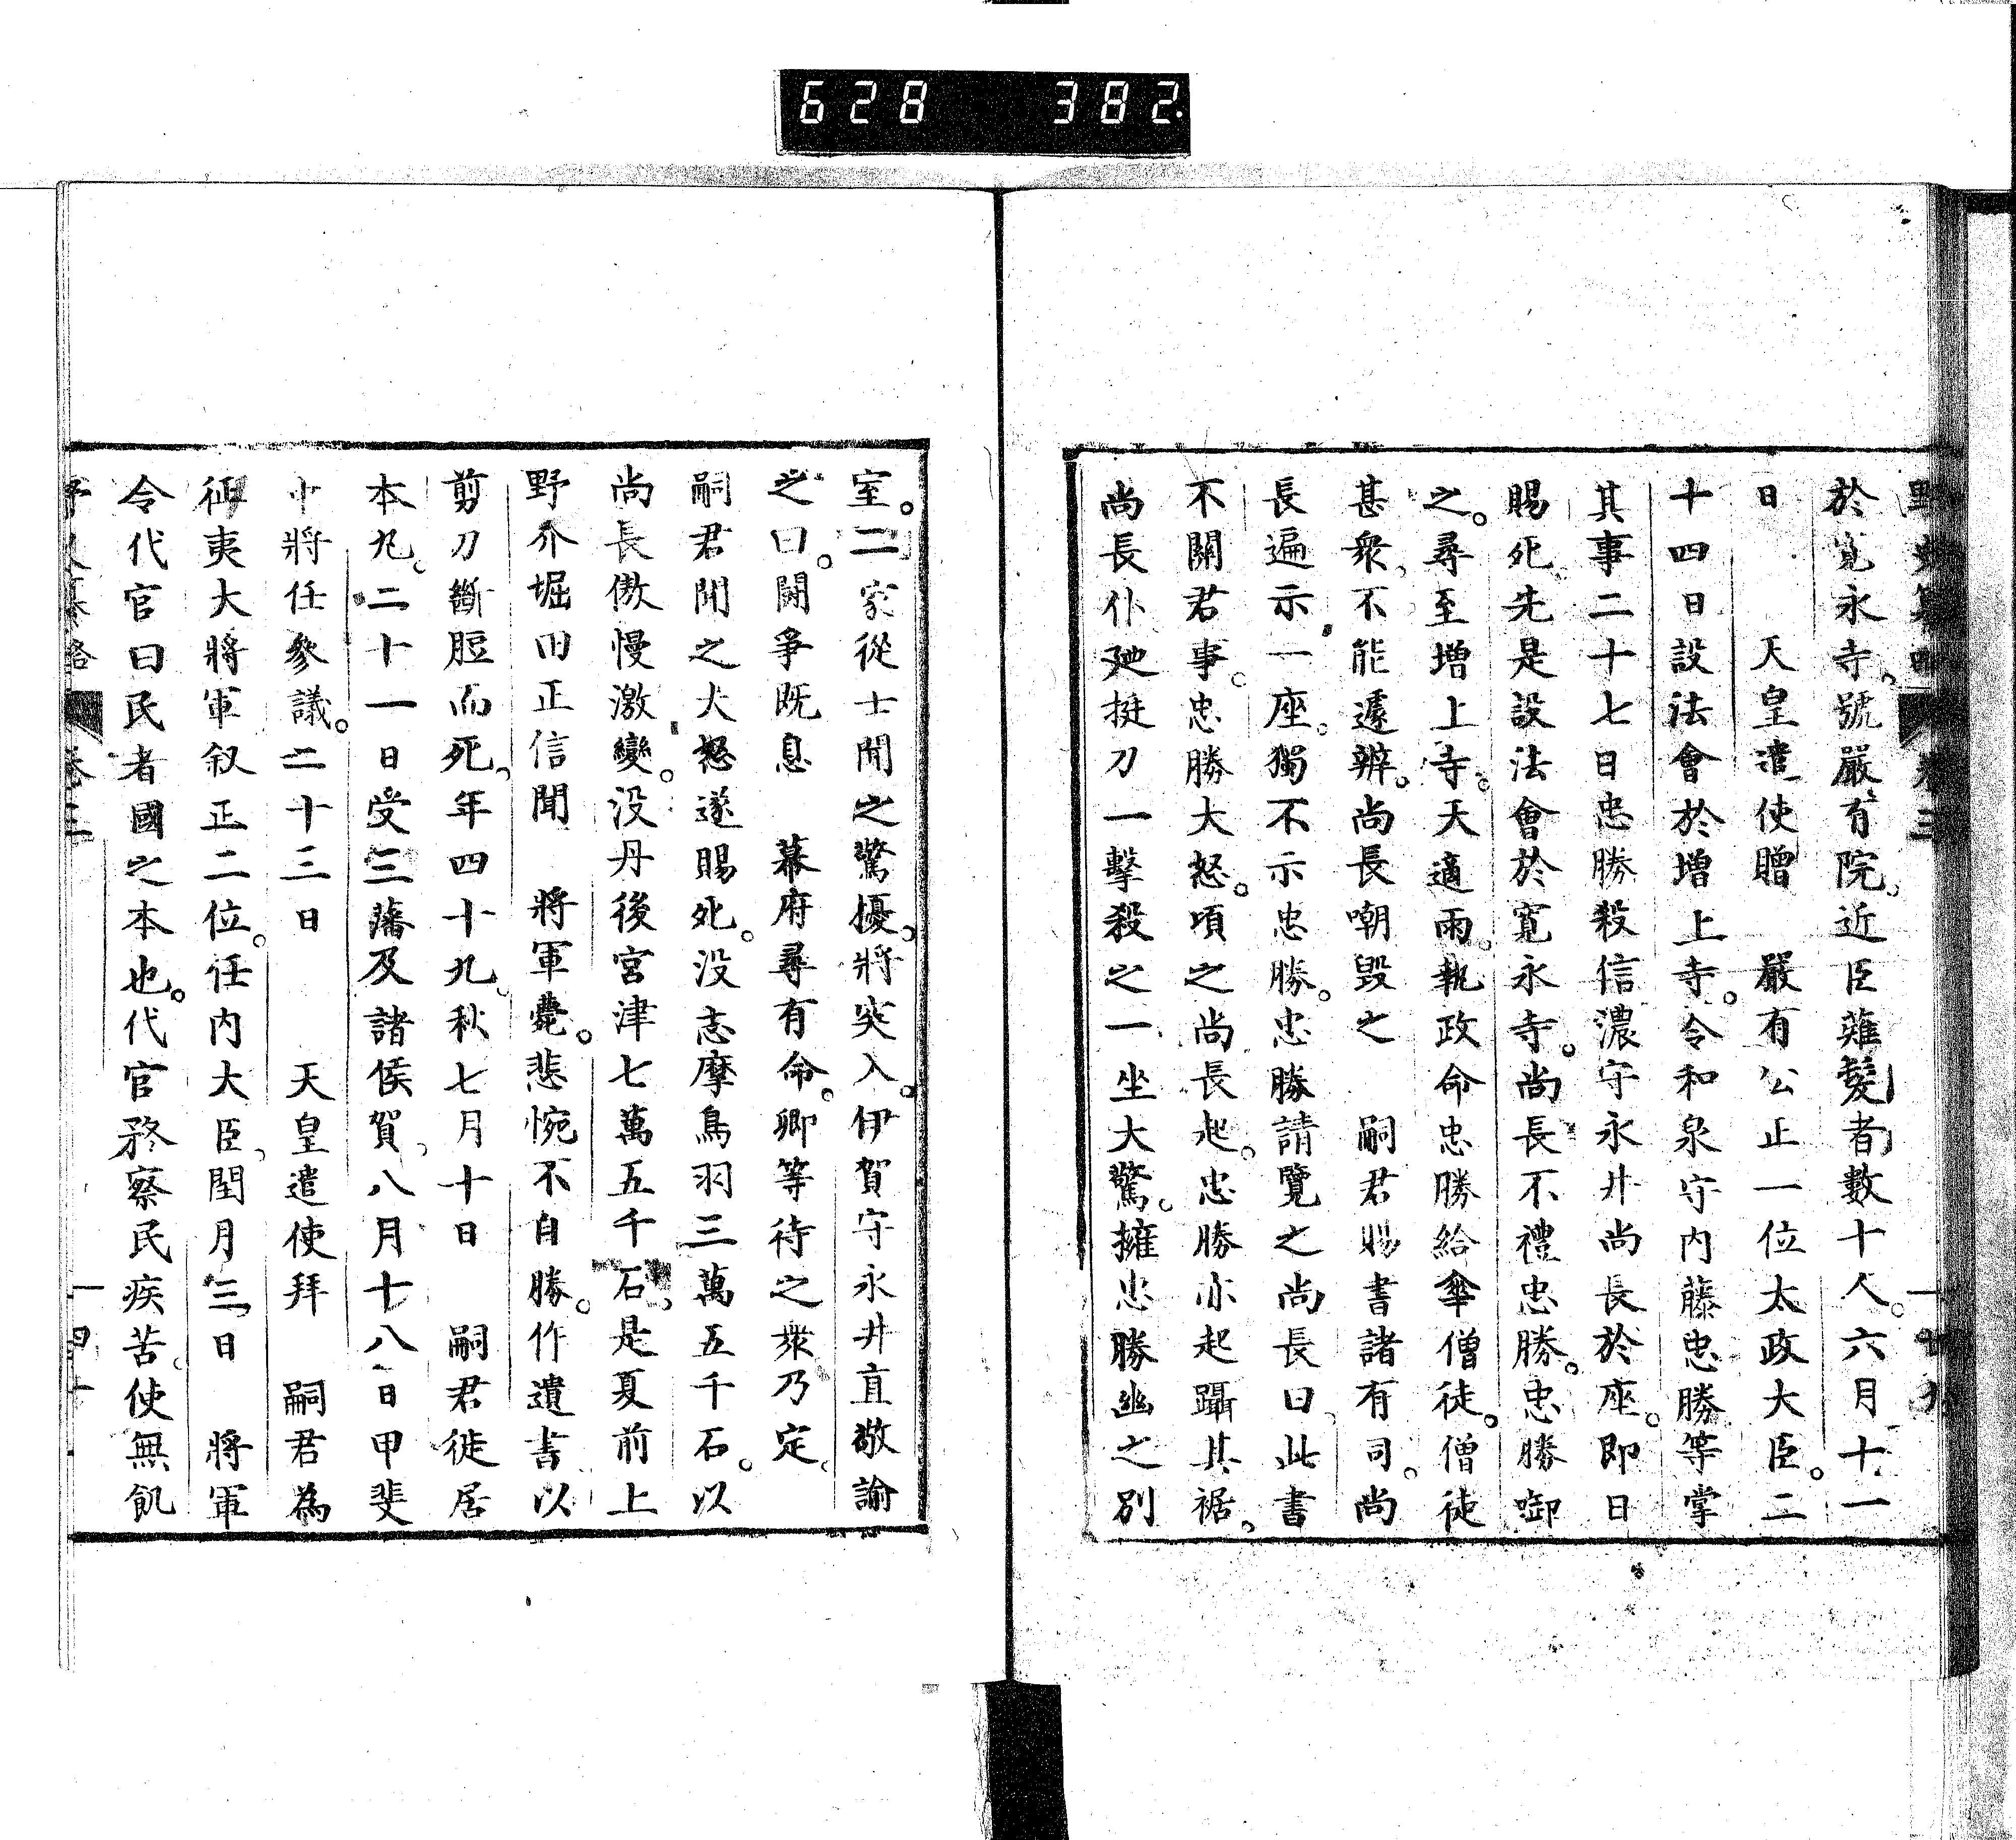 628 382
於寛永寺。號嚴有院。近臣薙髮者數十人。六月十一
日　天皇遣使贈　嚴有公正一位太政大臣。二
十四日設法會於增上寺。令和泉守内藤忠勝等掌
其事二十七日忠勝殺信濃守永井尚長於座。即日
賜死先是設法會於寛永寺。尚長不禮忠勝。忠勝啣
之。尋至增上寺。天適雨。執政命忠勝給傘僧徒。僧徒
甚衆、不能遽辨。尚長嘲毀之　嗣君賜書諸有司。尚
長遍示一座。獨不示忠勝。忠勝請覽之尚長曰、此書
不關君事。忠勝大怒。頃之尚長起。忠勝亦起躡其裾。
尚長仆迚挺刀一擊殺之一坐大驚。擁忠勝幽之別
室。二家從士聞之驚擾。將突入。伊賀守永井直敬諭
之曰。鬪爭既息　幕府尋有命。卿等待之衆乃定。
嗣君聞之大怒遂賜死。沒志摩鳥羽三萬五千石。以
尚長傲慢激變。没丹後宮津七萬五千石。是夏前上
野介堀田正信聞　將軍薨。悲惋不自勝。作遺書以
剪刀斷脰而死、年四十九。秋七月十日　嗣君徙居
本丸。二十一日受三藩及諸侯賀、八月十八日甲斐
中將任參議。二十三日　天皇遣使拜　嗣君為
征夷大將軍叙正二位。任内大臣、閏月三日　將軍
令代官曰民者國之本也。代官務察民疾苦。使無飢